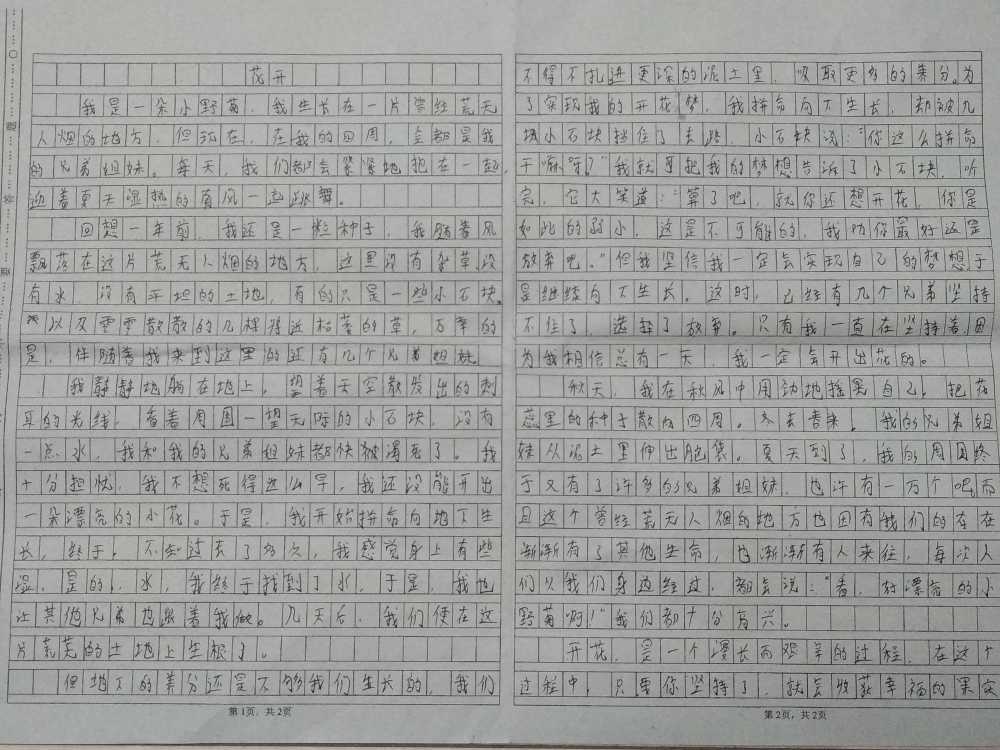 花开
我是一朵小野菊，我生长在一片曾经荒无
人烟的地方，但现在，在我的四周，全都是我
的兄弟姐妹。每天，我们都会紧紧地抱在一起，
迎着夏天湿热的夏风一起跳舞。
回想一年前，我还是一粒种子，我随着风
飘落在这片荒无人烟的地方，这里没有杂草没
有水，没有平坦的土地，有的只是一些小石块
以及零零散散的几棵接近枯萎的草，万幸的
是，伴随着我来到这里的还有几个兄弟姐妹
我静静地躺在地上，望着天空散发出的刺
耳的光线，看着周围一望无际的小石块，没有
一点水，我和我的兄弟姐妹都快被渴死了。我
十分担忧，我不想死得这么早，我还没能开出
一朵漂亮的小花。于是，我开始拼命向地下生
长，终于，不知过去了多久，我感觉身上有些
湿，是的，水，我终于找到了水，于是，我也
让其他兄弟也跟着我做。几天后，我们便在这
片荒芜的土地上生根了。
但地下的养分还是不够我们生长的，我们
第1页，共2页
不得不扎进更深的泥土里，吸取更多的养分。为
了实现我的开花梦，我拼命向下生长，却被几
块小石块挡住了去路，小石块说：“你这么拼命
干嘛呀？”我就把我的梦想告诉了小石块，听
完，它大笑道：“算了吧，就你还想开花，你是
如此的弱小，这是不可能的，我劝你最好还是
放弃吧。”但我坚信我一定会实现自己的梦想于
是继续向下生长。这时，已经有几个兄弟坚持
不住了，选择了放弃。只有我一直在坚持着因
为我相信总有一天 我一定会开出花的。
秋天，我在秋风中用动地摇晃自己，把花
蕊里的种子散向四周。冬去春来，我的兄弟姐
妹从泥土里伸出脑袋。夏天到了，我的周围终
于又有了许多的兄弟姐妹，也许有一万个吧而
且这个曾经荒无人烟的地方也因有我们的存在
渐渐有了其他生命，也渐渐有人来往，每次人
们从我们身边经过，都会说：“看，好漂亮的小
野菊啊！”我们都十分高兴。
开花，是一个漫长而艰辛的过程，在这个
过程中，只要你坚持了，就会收获幸福的果实
第2页，共2页